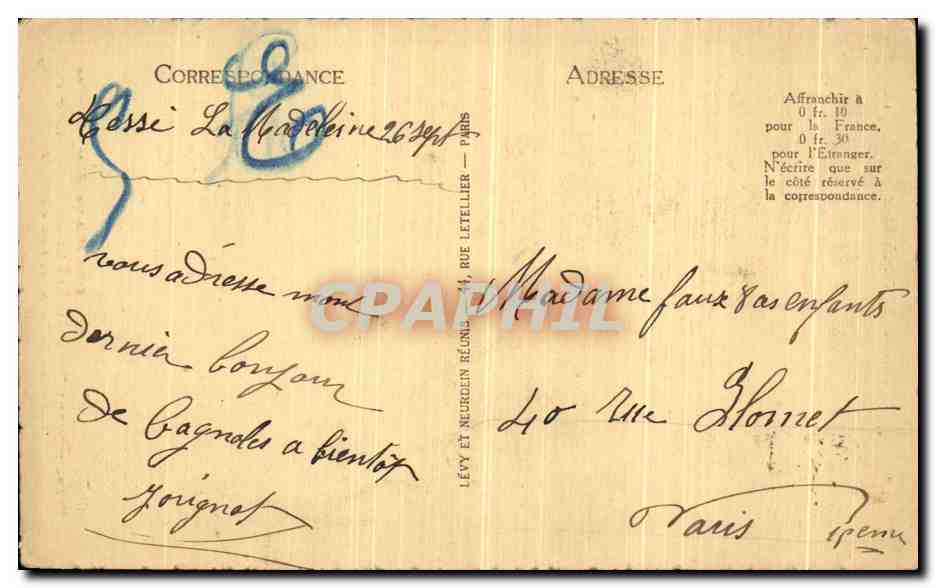 CORRESPONDANCE
Tessé La Madeleine 26 sept
vous adresse mon
dernier bonjour
de Bagnoles a bientôt
Joignot
LÉVY ET NEURDEIN RÉUNIS, 44, RUE LETELLIER — PARIS
ADRESSE
Affranchir à
0 fr. 10
pour la France,
0 fr. 30
pour l'Étranger.
N'écrire que sur
le côté réservé à
la correspondance.
Madame faux enfants
40 rue Blomet
Paris
CPAPHIL